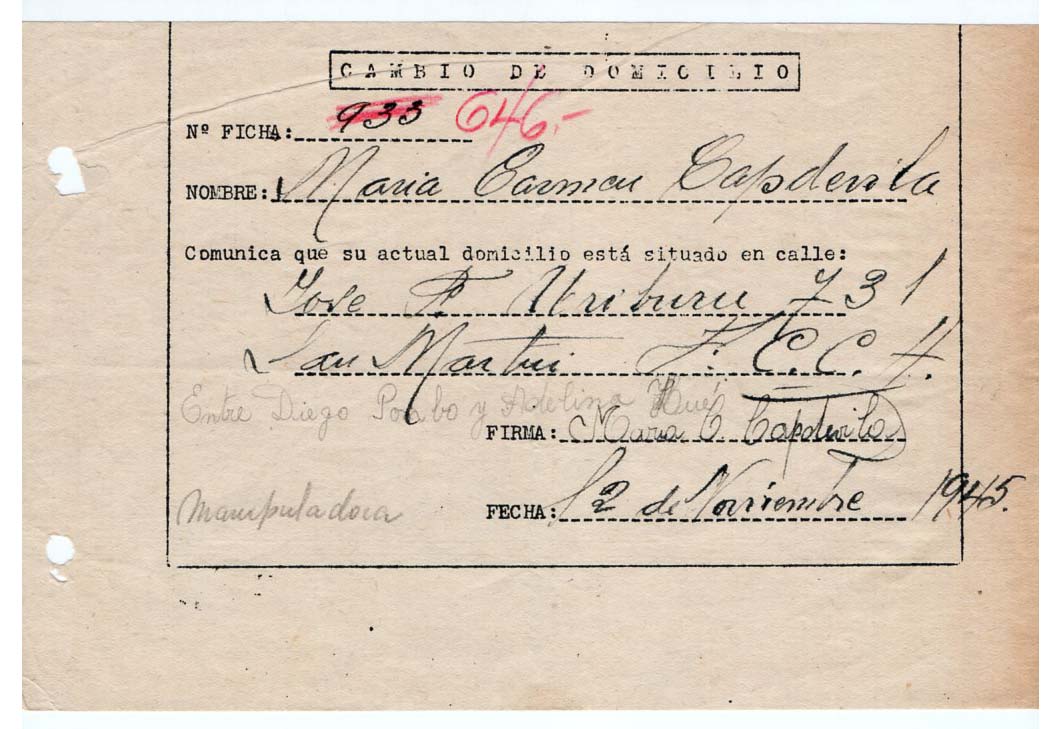 CAMBIO DE DOMICILIO
Nº FICHA: 933 646.-
NOMBRE: Maria Carmen Capdevila
Comunica que su actual domicilio está situado en calle:
Jose F. Uriburu 731
San Martin F. C. C. A.
Entre Diego Pombo y Adelina
FIRMA: Maria C. Capdevila
Manipuladora
FECHA: 12 de Noviembre 1945.